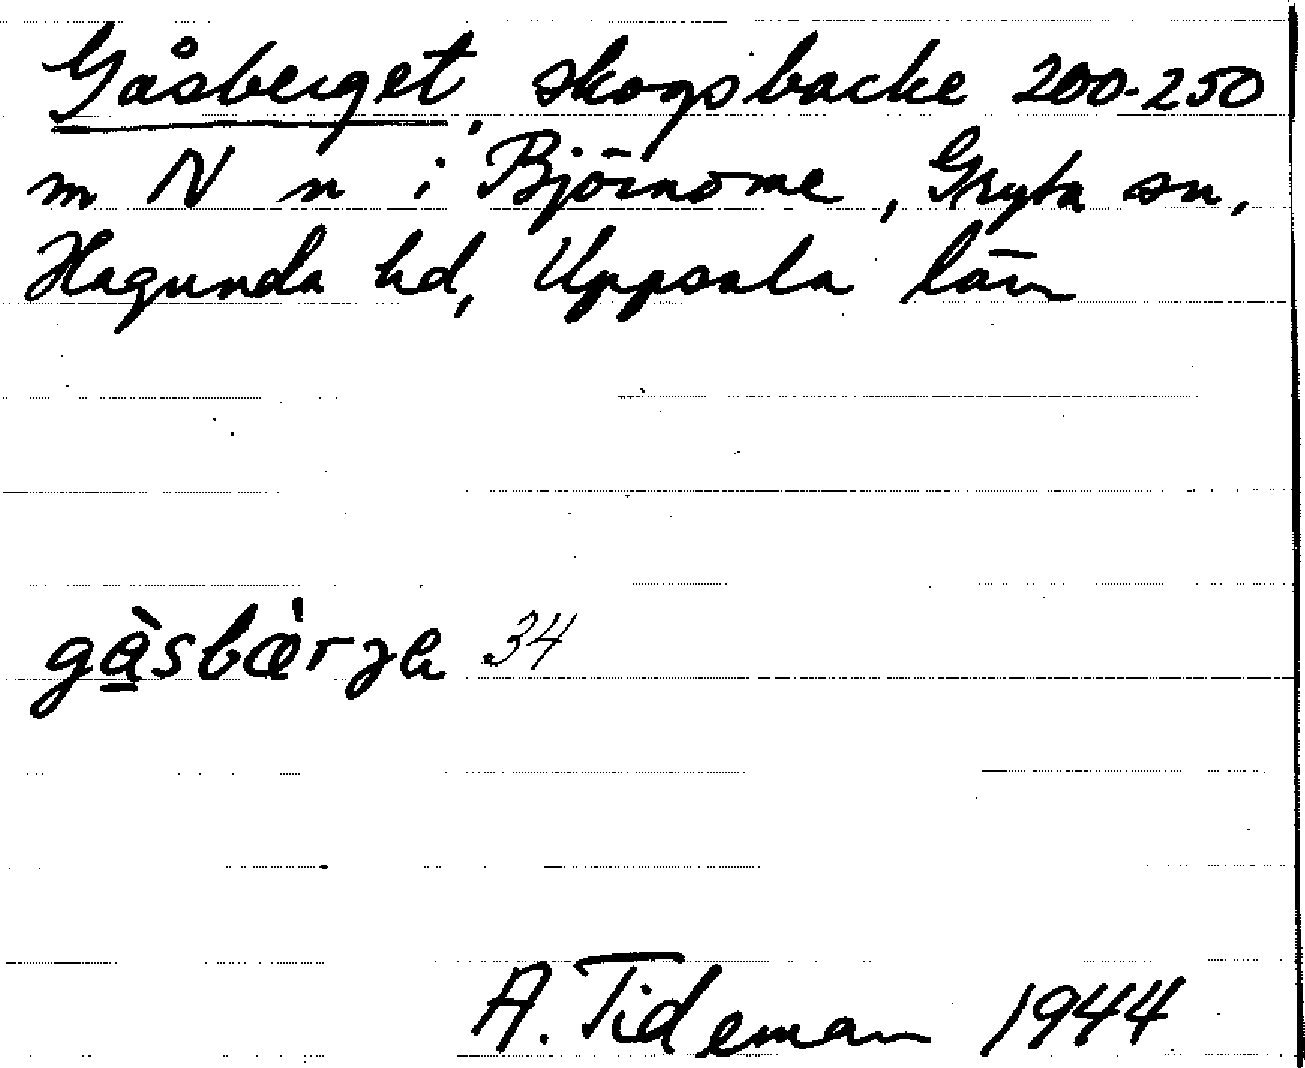 Gåsberget, skogsbacke 200-250
m N n i Björnome, Gryta sn,
Hagunda hd, Uppsala län
gàsbærgə 34
A. Tideman 1944